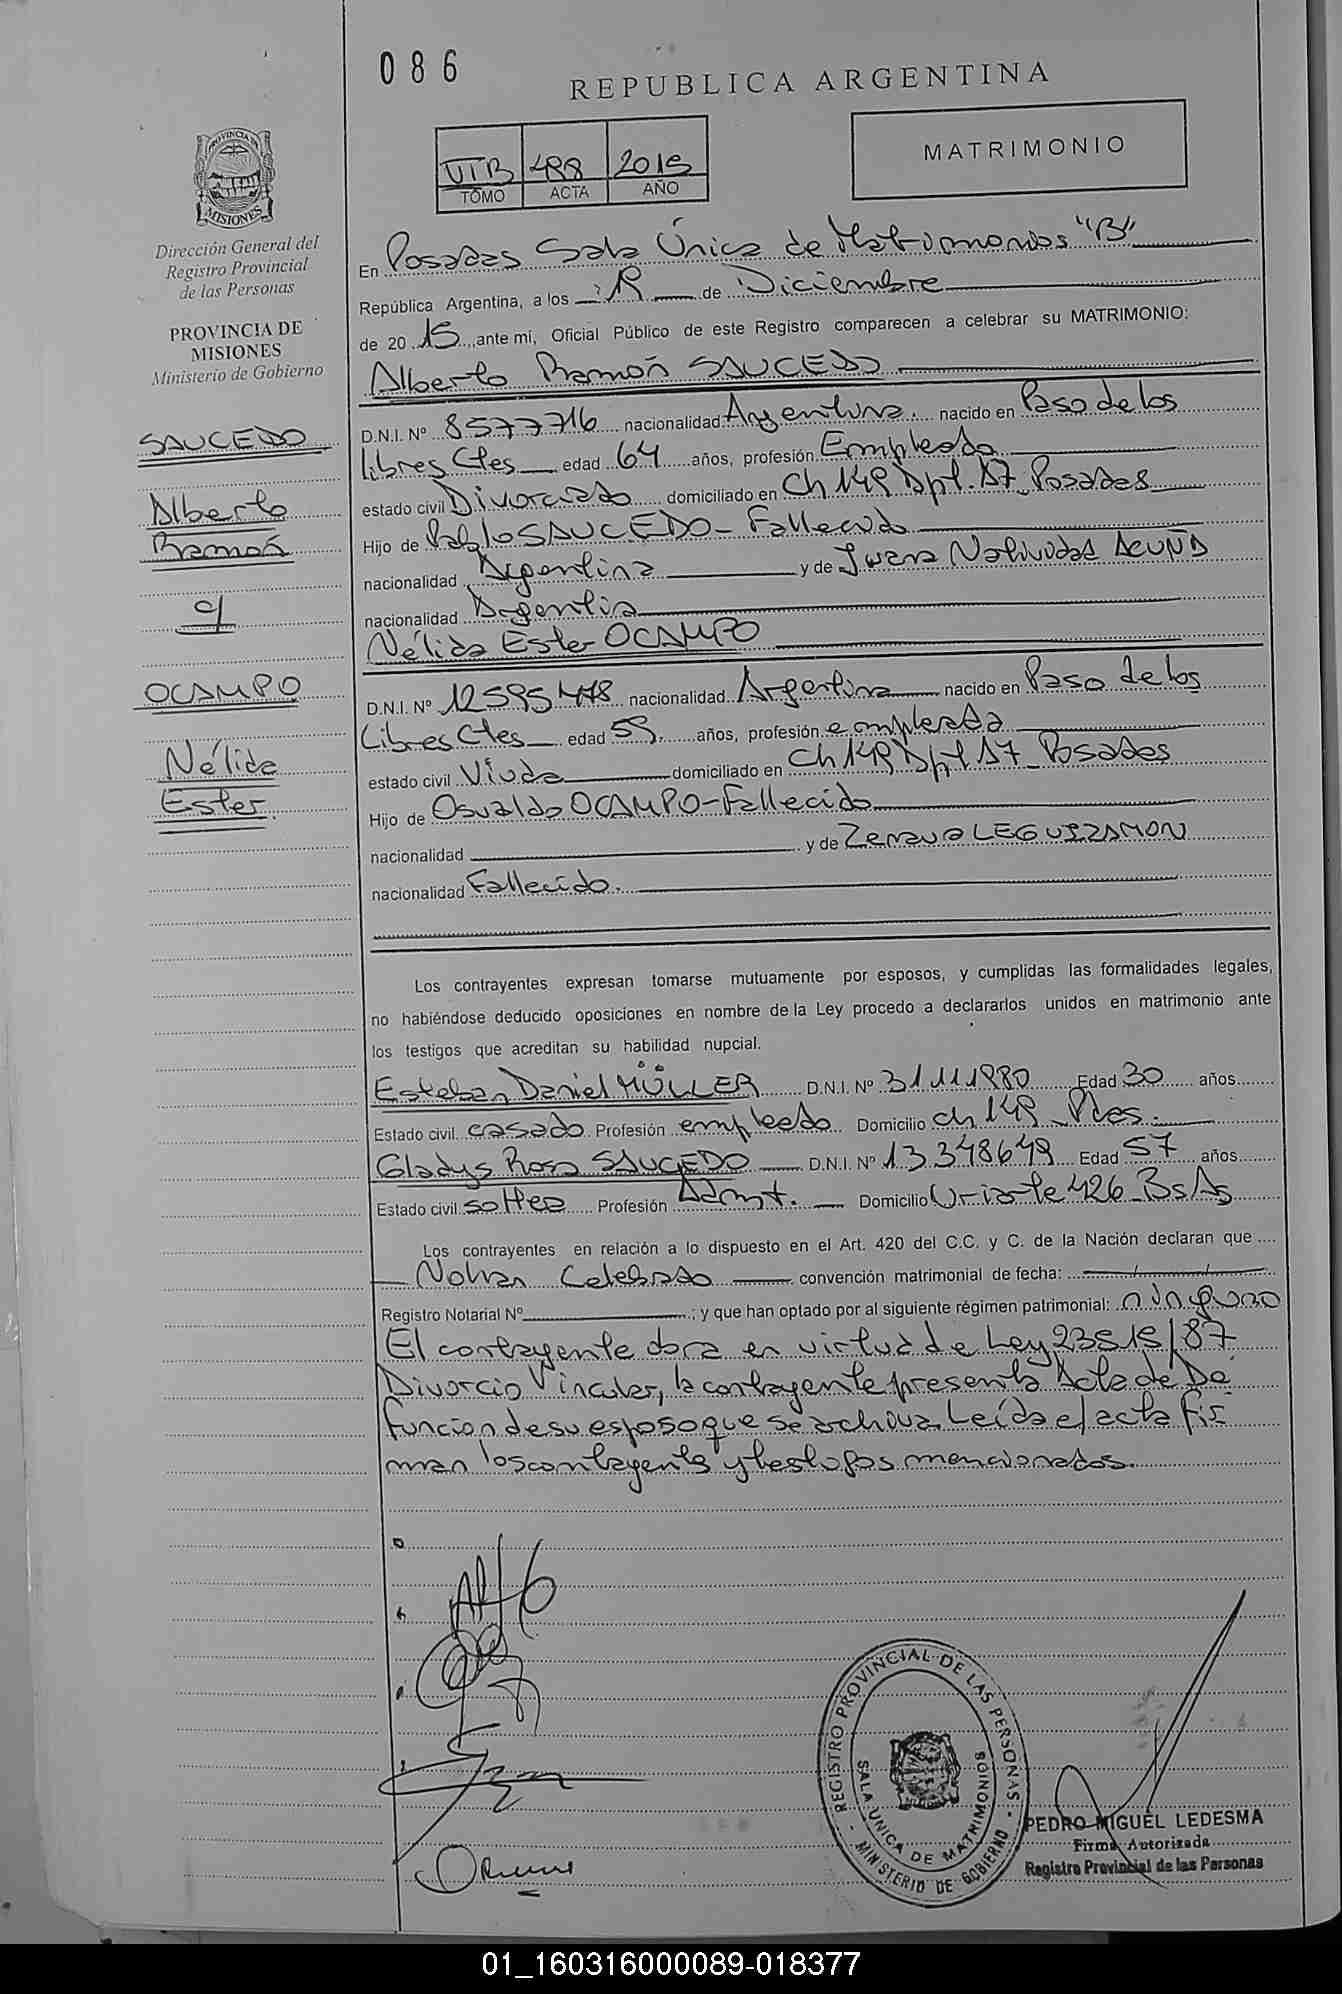 086
REPUBLICA ARGENTINA
PROVINCIA DE
MISIONES
VIB 488 2015
TOMO ACTA AÑO
MATRIMONIO
Dirección General del
Registro Provincial
de las Personas
PROVINCIA DE
MISIONES
Ministerio de Gobierno
SAUCEDO
Alberto
Ramón
c/
OCAMPO
Nélida
Ester
En Posadas Sala Única de Matrimonios "B"
República Argentina, a los de Diciembre
de 20 15 ,ante mi, Oficial Público de este Registro comparecen a celebrar su MATRIMONIO:
Alberto Ramón SAUCEDO
D.N.I. Nº 8577716 nacionalidad Argentina. nacido en Paso de los
libres Ctes edad 64 años, profesión Empleado
estado civil Divorciado domiciliado en Ch 149 Dpt. 17 Posadas
Hijo de Pablo SAUCEDO - Fallecido
nacionalidad Argentina y de Juana Natividad ACUÑA
nacionalidad Argentia
Nélida Ester OCAMPO
D.N.I. Nº 12595478 nacionalidad Argentina nacido en Paso de los
Libres Ctes edad 59 años, profesión empleada
estado civil Viuda domiciliado en Ch 149 Dpt 17 Posadas
Hijo de Osvaldo OCAMPO - Fallecido
nacionalidad y de LEGUIZAMON
nacionalidad Fallecido.
Los contrayentes expresan tomarse mutuamente por esposos, y cumplidas las formalidades legales,
no habiéndose deducido oposiciones en nombre de la Ley procedo a declararlos unidos en matrimonio ante
los testigos que acreditan su habilidad nupcial.
Esteban Daniel MÜLLER D.N.I. Nº 31.111980 Edad 30 años
Estado civil casado Profesión empleado Domicilio ch 149 Pdas.
Gladys Rosa SAUCEDO D.N.I. Nº 13348649 Edad 57 años
Estado civil soltea Profesión Admt. Domicilio Uriarte 426 Bs As
Los contrayentes en relación a lo dispuesto en el Art. 420 del C.C. y C. de la Nación declaran que
No han Celebrado convención matrimonial de fecha: / /
Registro Notarial Nº ; y que han optado por al siguiente régimen patrimonial: ninguno
El contrayente obra en virtud de Ley 23515/87
Divorcio Vincular, la contrayente presenta Acta de De
función de su esposo que se archiva. Leída el acta fir
man los contrayente y testigos mencionados.
REGISTRO PROVINCIAL DE LAS PERSONAS
SALA UNICA DE MATRIMONIOS
MINISTERIO DE GOBIERNO
PEDRO MIGUEL LEDESMA
Firma Autorizada
Registro Provincial de las Personas
01_160316000089-018377